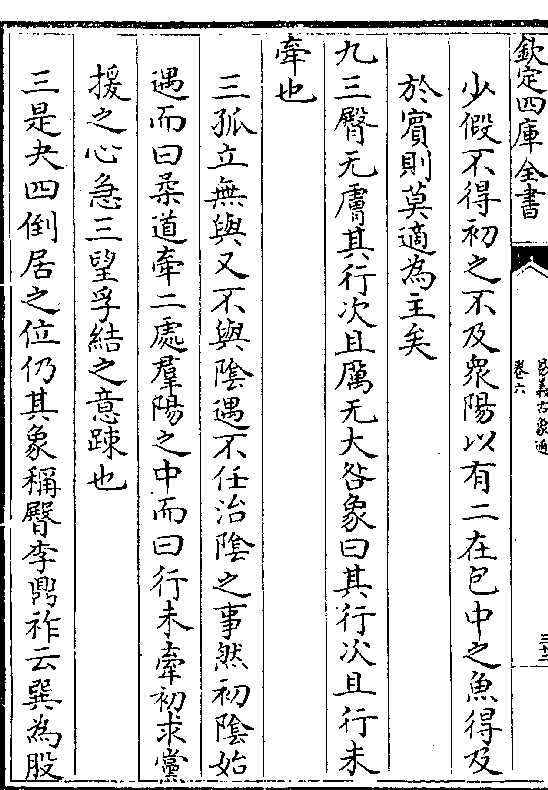 欽定四庫全書
易義古象通
卷六
三十二
少假不得初之不及衆陽以有二在包中之魚得及
於賓則莫適為主矣
九三臀无膚其行次且厲无大咎象曰其行次且行未
牽也
三孤立無與又不與陰遇不任治陰之事然初陰始
遇而曰柔道牽二處羣陽之中而曰行未牽初求黨
援之心急三望孚結之意踈也
三是夬四倒居之位仍其象稱臀李鼎祚云巽為股